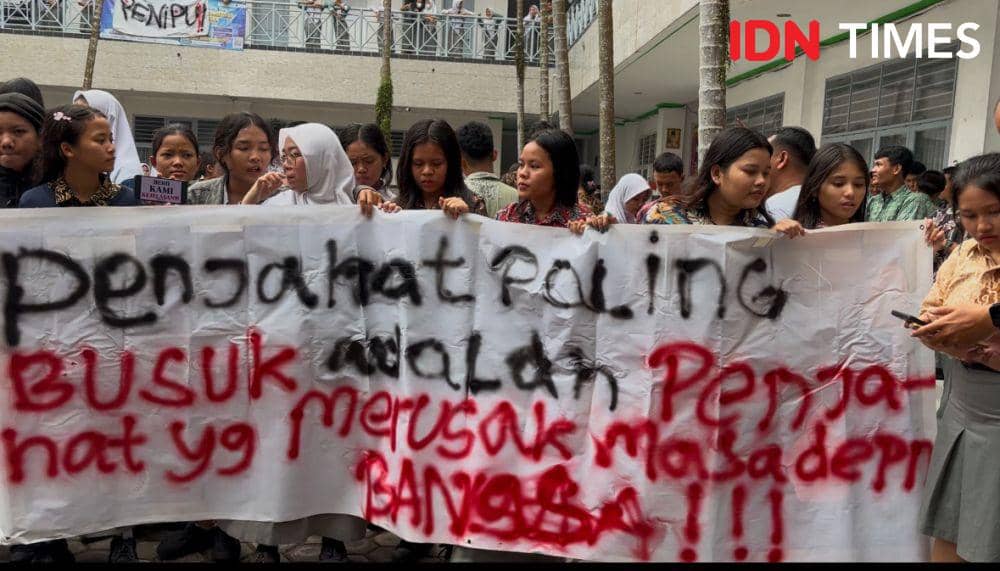 PENIPU!
IDN TIMES
DEMI
KAMI
Penjahat PALING
BUSUK adaLah Penja-
hat yg merusak masa depn
BANGSA !!!